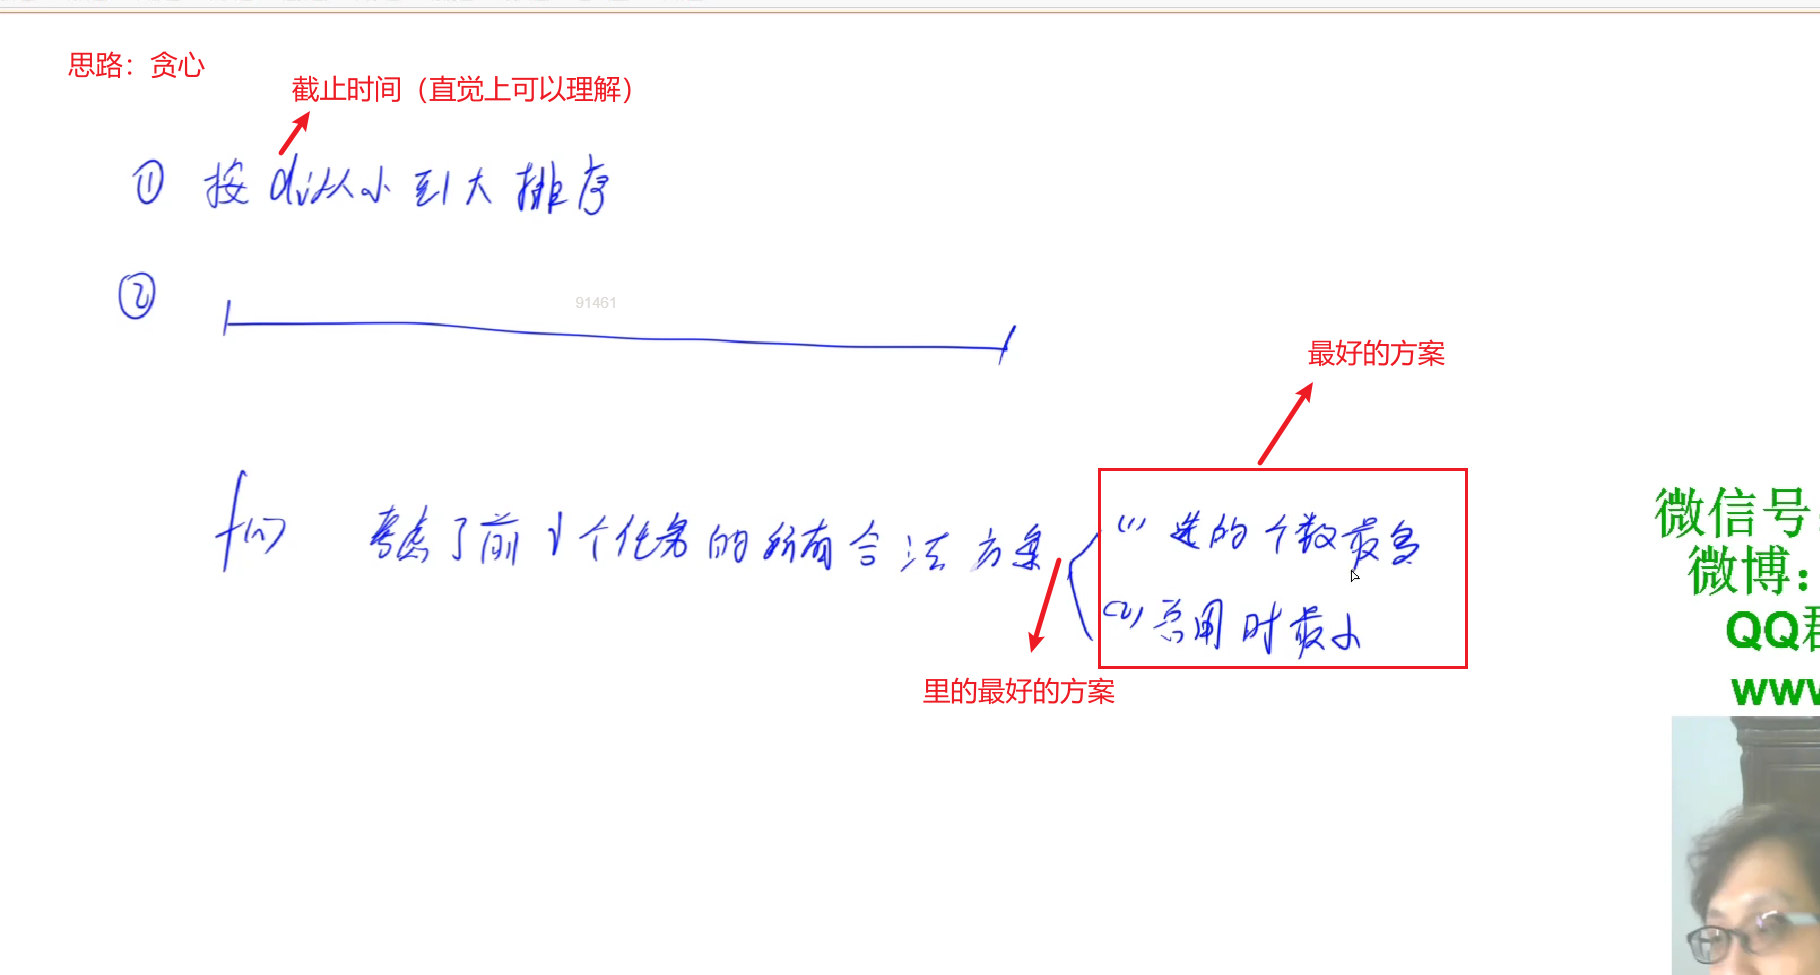 思路：贪心
截止时间（直觉上可以理解）
① 按di从小到大排序
②
91461
最好的方案
f(i) 考虑了前i个任务的所有合法方案
(1) 选的个数最多
(2) 总用时最小
里的最好的方案
微信号:
微博:
QQ群
www